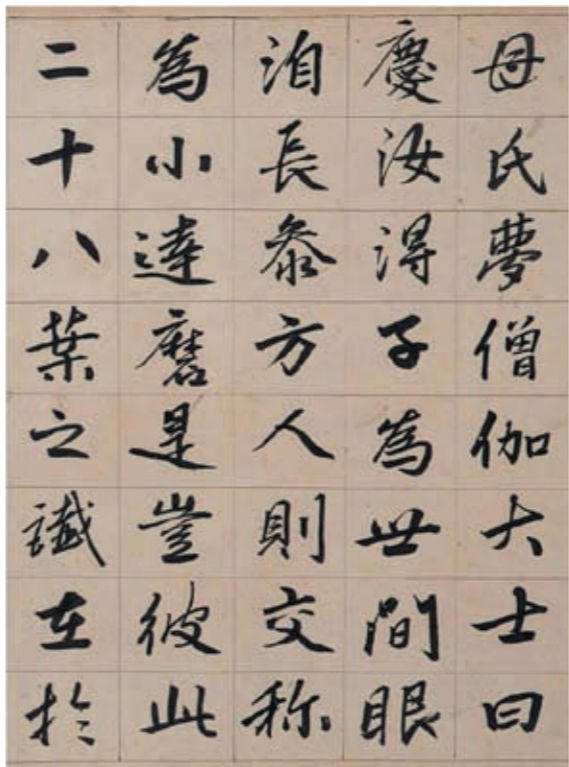 母氏夢僧伽大士曰
慶汝得子為世間眼
洎長叅方人則交称
為小達磨是豈彼此
二十八葉之讖在於